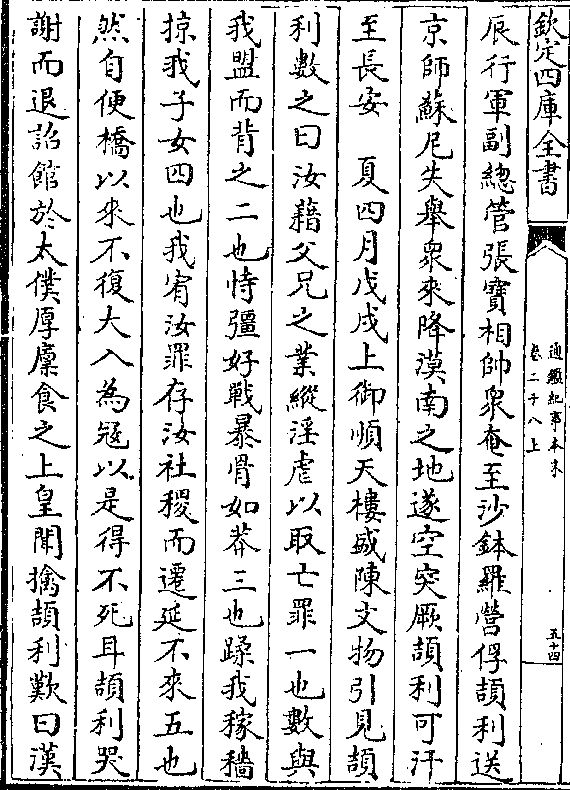 欽定四庫全書
通鑑紀事本末
卷二十八上
五十四
辰行軍副總管張寶相帥衆奄至沙鉢羅營俘頡利送
京師蘇尼失舉衆來降漠南之地遂空突厥頡利可汗
至長安　夏四月戊戌上御順天樓盛陳文物引見頡
利數之曰汝藉父兄之業縱淫虐以取亡罪一也數與
我盟而背之二也恃彊好戰暴骨如莽三也蹂我稼穡
掠我子女四也我宥汝罪存汝社稷而遷延不來五也
然自便橋以來不復大入為冦以是得不死耳頡利哭
謝而退詔館於太僕厚廩食之上皇聞擒頡利歎曰漢